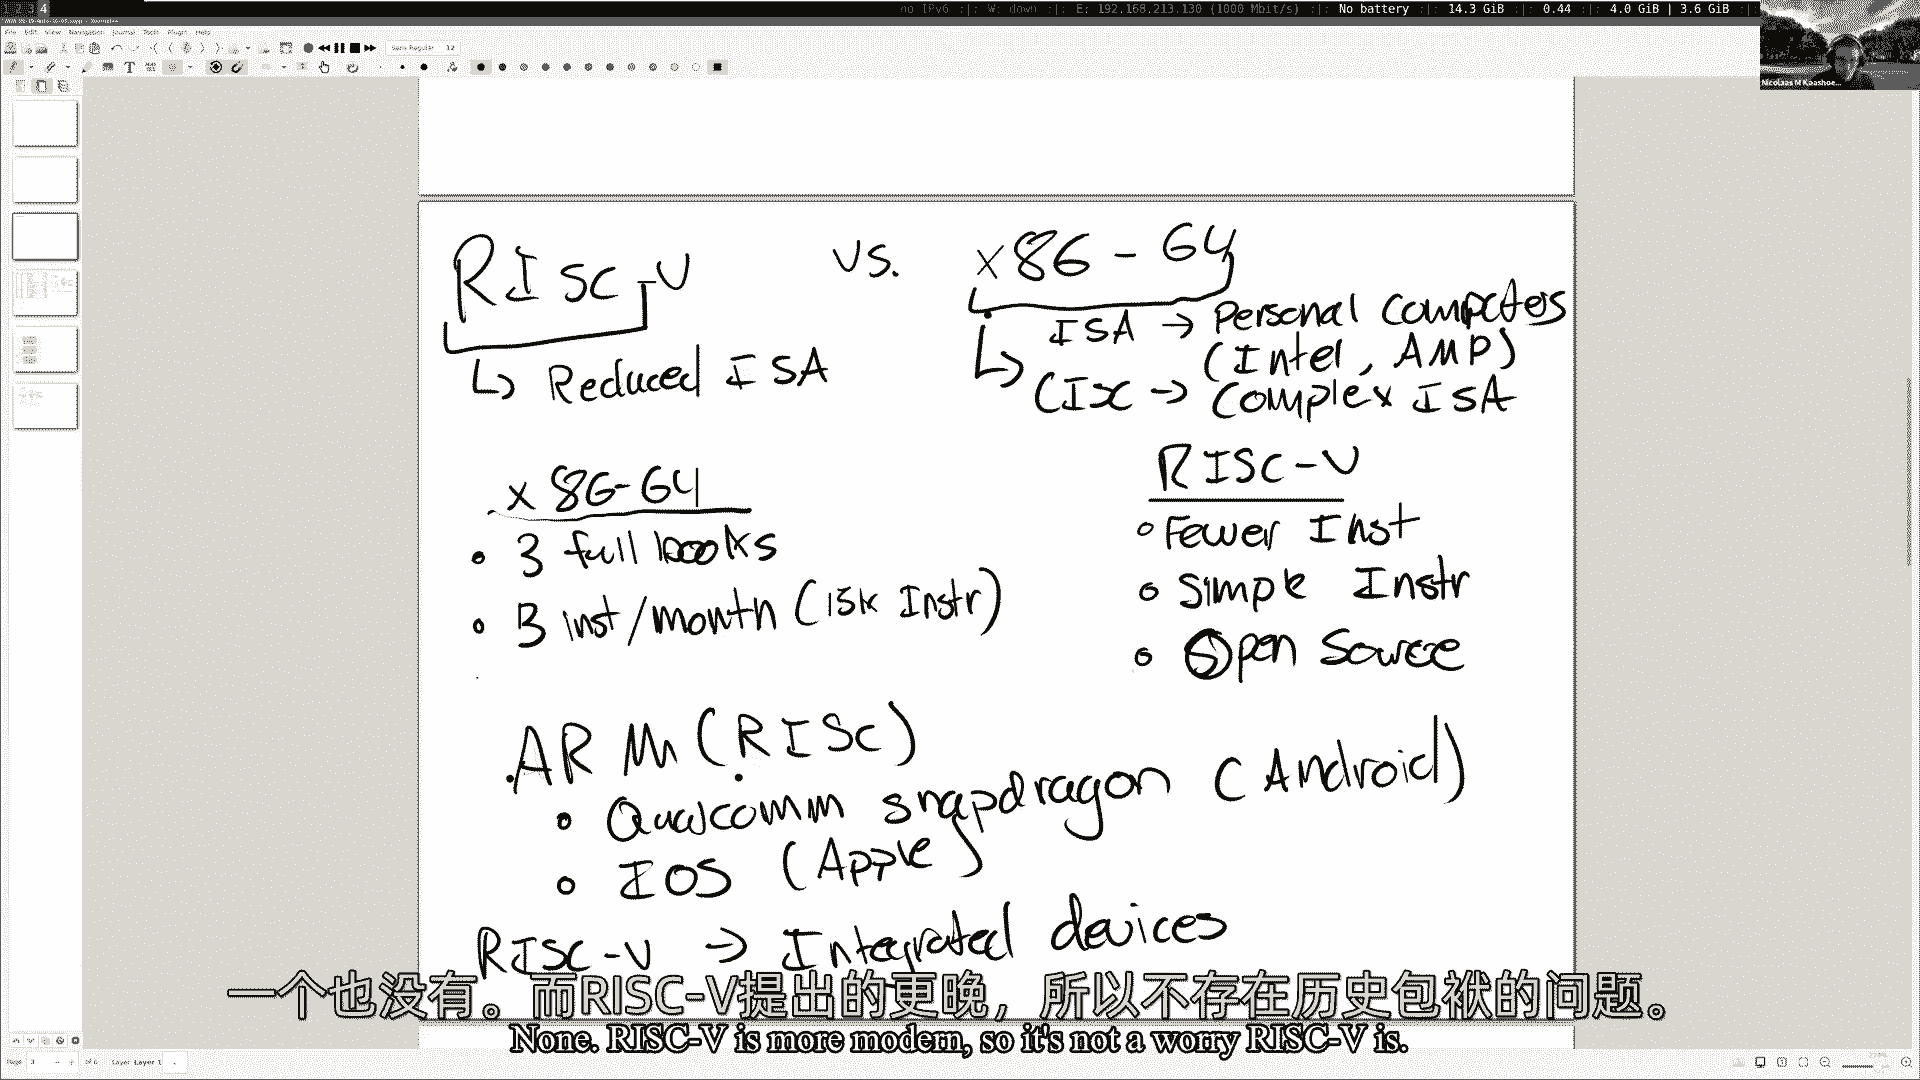 1 2 3 4
no IPv6 :|: W: down :|: E: 192.168.213.130 (1000 Mbit/s) :|: No battery :|: 14.3 GiB :|: 0.44 :|: 4.0 GiB | 3.6 GiB :|:
File Edit View Navigation Journal Tools Plugin Help
Sans Regular 12
Nicolaas M Kaashoe...
RISC-V vs. x86-64
ISA → Personal Computers
(Intel, AMP)
↳ Reduced ISA
↳ CISC → Complex ISA
x86-64
• 3 full books
• 3 inst/month (15k Instr)
RISC-V
• Fewer Inst
• Simple Instr
• Open Source
ARM (RISC)
• Qualcomm snapdragon (Android)
• IOS (Apple)
RISC-V → Integrated devices
一个也没有。而RISC-V提出的更晚，所以不存在历史包袱的问题。
None. RISC-V is more modern, so it's not a worry RISC-V is.
Page 3 of 6 Layer Layer 1